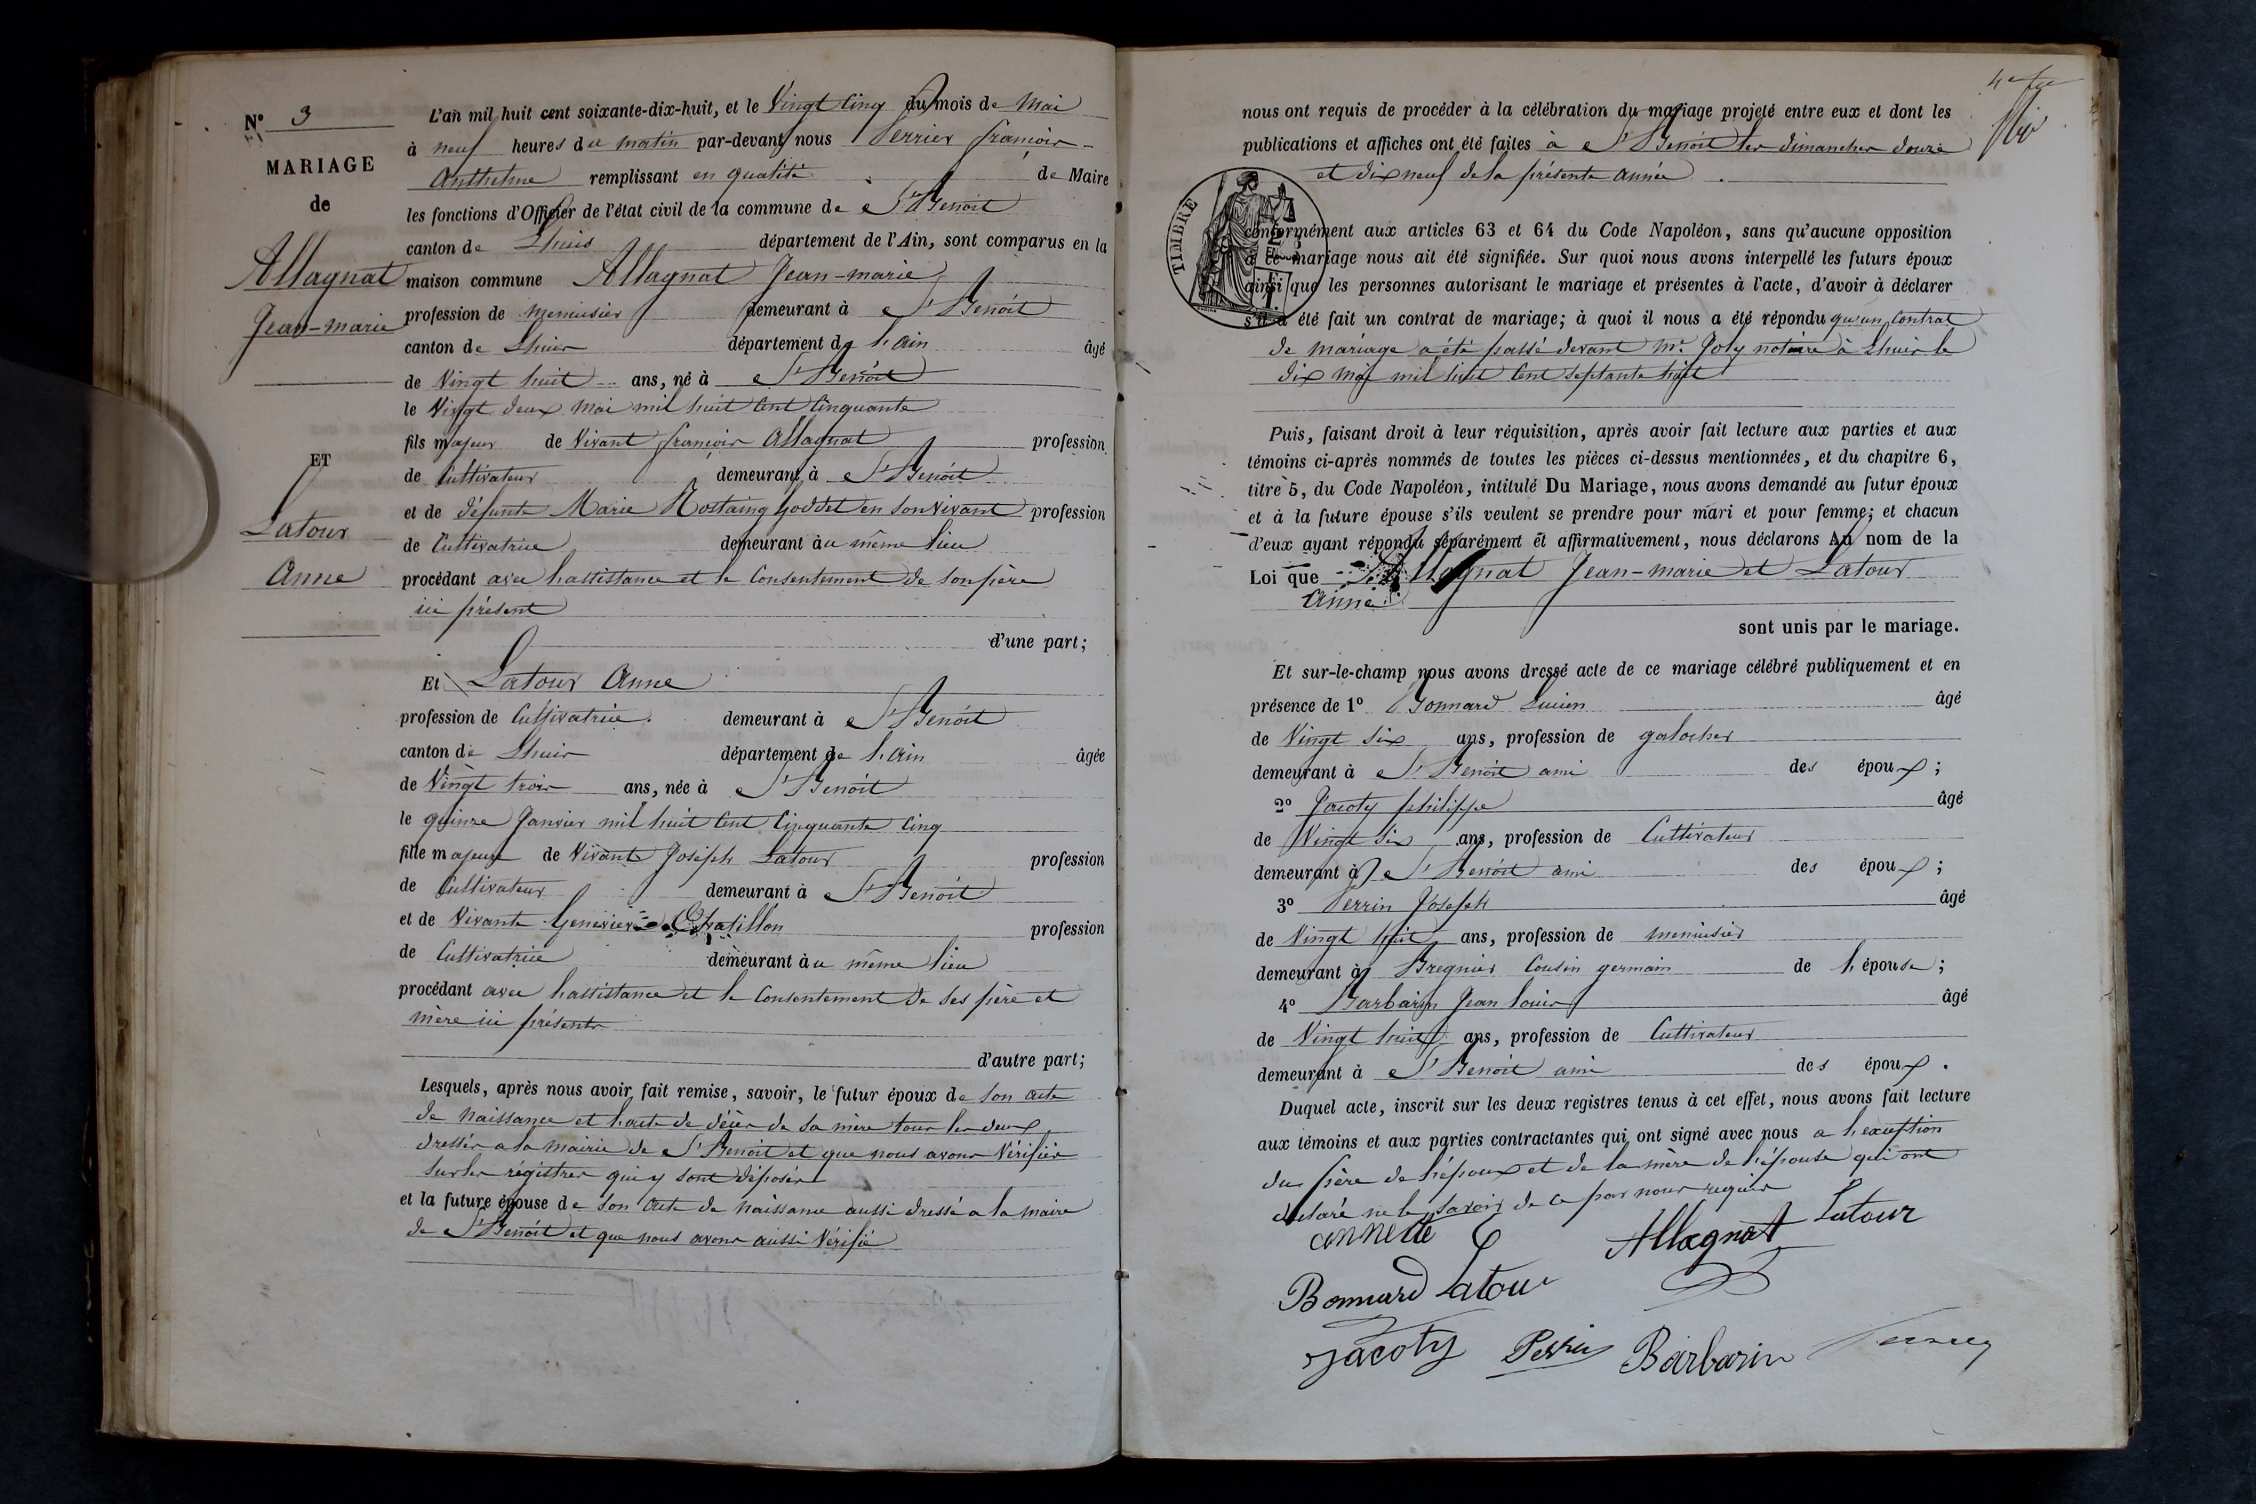 N° 3
MARIAGE
de
Allagnat
Jean-marie
ET
Latour
Anne
L'an mil huit cent soixante-dix-huit, et le Vingt Cinq du mois de Mai
à neuf heures du matin par-devant nous Perrier françois
Anthelme remplissant en qualité de Maire
les fonctions d'Officier de l'état civil de la commune de St Benoit
canton de Lhuis département de l'Ain, sont comparus en la
maison commune Allagnat Jean-marie
profession de menuisier demeurant à St Benoit
canton de Lhuis département de l'ain âgé
de Vingt huit ans, né à St Benoit
le Vingt deux mai mil huit Cent Cinquante
fils majeur de Vivant françois Allagnat profession
de Cultivateur demeurant à St Benoit
et de défunte Marie Rostaing en son vivant profession
de Cultivatrice demeurant au même lieu
procédant avec l'assistance et le Consentement de son père
ici présent
d'une part;
Et Latour Anne
profession de Cultivatrice demeurant à St Benoit
canton de Lhuis département de l'ain âgée
de Vingt trois ans, née à St Benoit
le quinze Janvier mil huit Cent Cinquante Cinq
fille majeure de Vivant Joseph Latour profession
de Cultivateur demeurant à St Benoit
et de Vivante Genevieve Chatillon profession
de Cultivatrice demeurant au même lieu
procédant avec l'assistance et le Consentement de ses père et
mère ici présents
d'autre part;
Lesquels, après nous avoir fait remise, savoir, le futur époux de son acte
de naissance et l'acte de décès de sa mère tous les deux
dressés a la mairie de St Benoit et que nous avons Vérifiés
sur les régistres qui y sont déposés
et la future épouse de son acte de naissance aussi dressé a la maire
de St Benoit et que nous avons aussi Vérifié
nous ont requis de procéder à la célébration du mariage projeté entre eux et dont les
publications et affiches ont été faites à St Benoit les dimanches douze
et dix neuf de la présente année
TIMBRE
conformément aux articles 63 et 64 du Code Napoléon, sans qu'aucune opposition
à ce mariage nous ait été signifiée. Sur quoi nous avons interpellé les futurs époux
ainsi que les personnes autorisant le mariage et présentes à l'acte, d'avoir à déclarer
s'il a été fait un contrat de mariage; à quoi il nous a été répondu qu'un Contrat
de mariage a été passé devant Me Joly notaire à Lhuis le
dix mai mil huit Cent septante huit
Puis, faisant droit à leur réquisition, après avoir fait lecture aux parties et aux
témoins ci-après nommés de toutes les pièces ci-dessus mentionnées, et du chapitre 6,
titre 5, du Code Napoléon, intitulé Du Mariage, nous avons demandé au futur époux
et à la future épouse s'ils veulent se prendre pour mari et pour femme; et chacun
d'eux ayant répondu séparément et affirmativement, nous déclarons Au nom de la
Loi que Allagnat Jean-marie et Latour
Anne
sont unis par le mariage.
Et sur-le-champ nous avons dressé acte de ce mariage célébré publiquement et en
présence de 1° Bonnard Lucien âgé
de Vingt six ans, profession de galocher
demeurant à St Benoit ami des époux;
2° Jacoty philippe âgé
de Vingt six ans, profession de Cultivateur
demeurant à St Benoit ami des époux;
3° Perrin Joseph âgé
de Vingt huit ans, profession de menuisier
demeurant à Bregnier Cousin germain de l'épouse;
4° Barbarin Jean louis âgé
de Vingt huit ans, profession de Cultivateur
demeurant à St Benoit ami des époux.
Duquel acte, inscrit sur les deux registres tenus à cet effet, nous avons fait lecture
aux témoins et aux parties contractantes qui ont signé avec nous a l'exception
du père de l'époux et de la mère de l'épouse qui ont
déclaré ne le savoir de ce par nous requis
annette Allagnat Latour
Bonnard Latour
Jacoty Perrin Barbarin